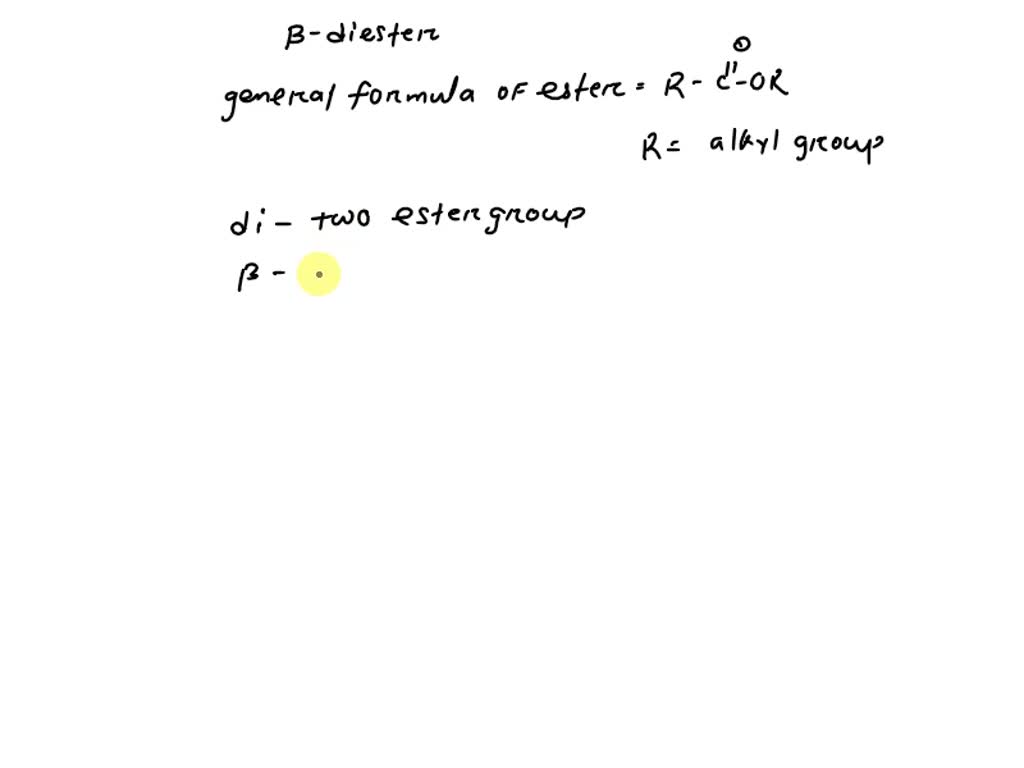 β-diester
O
general formula of ester = R - C - OR
R = alkyl group
di - two ester group
β -